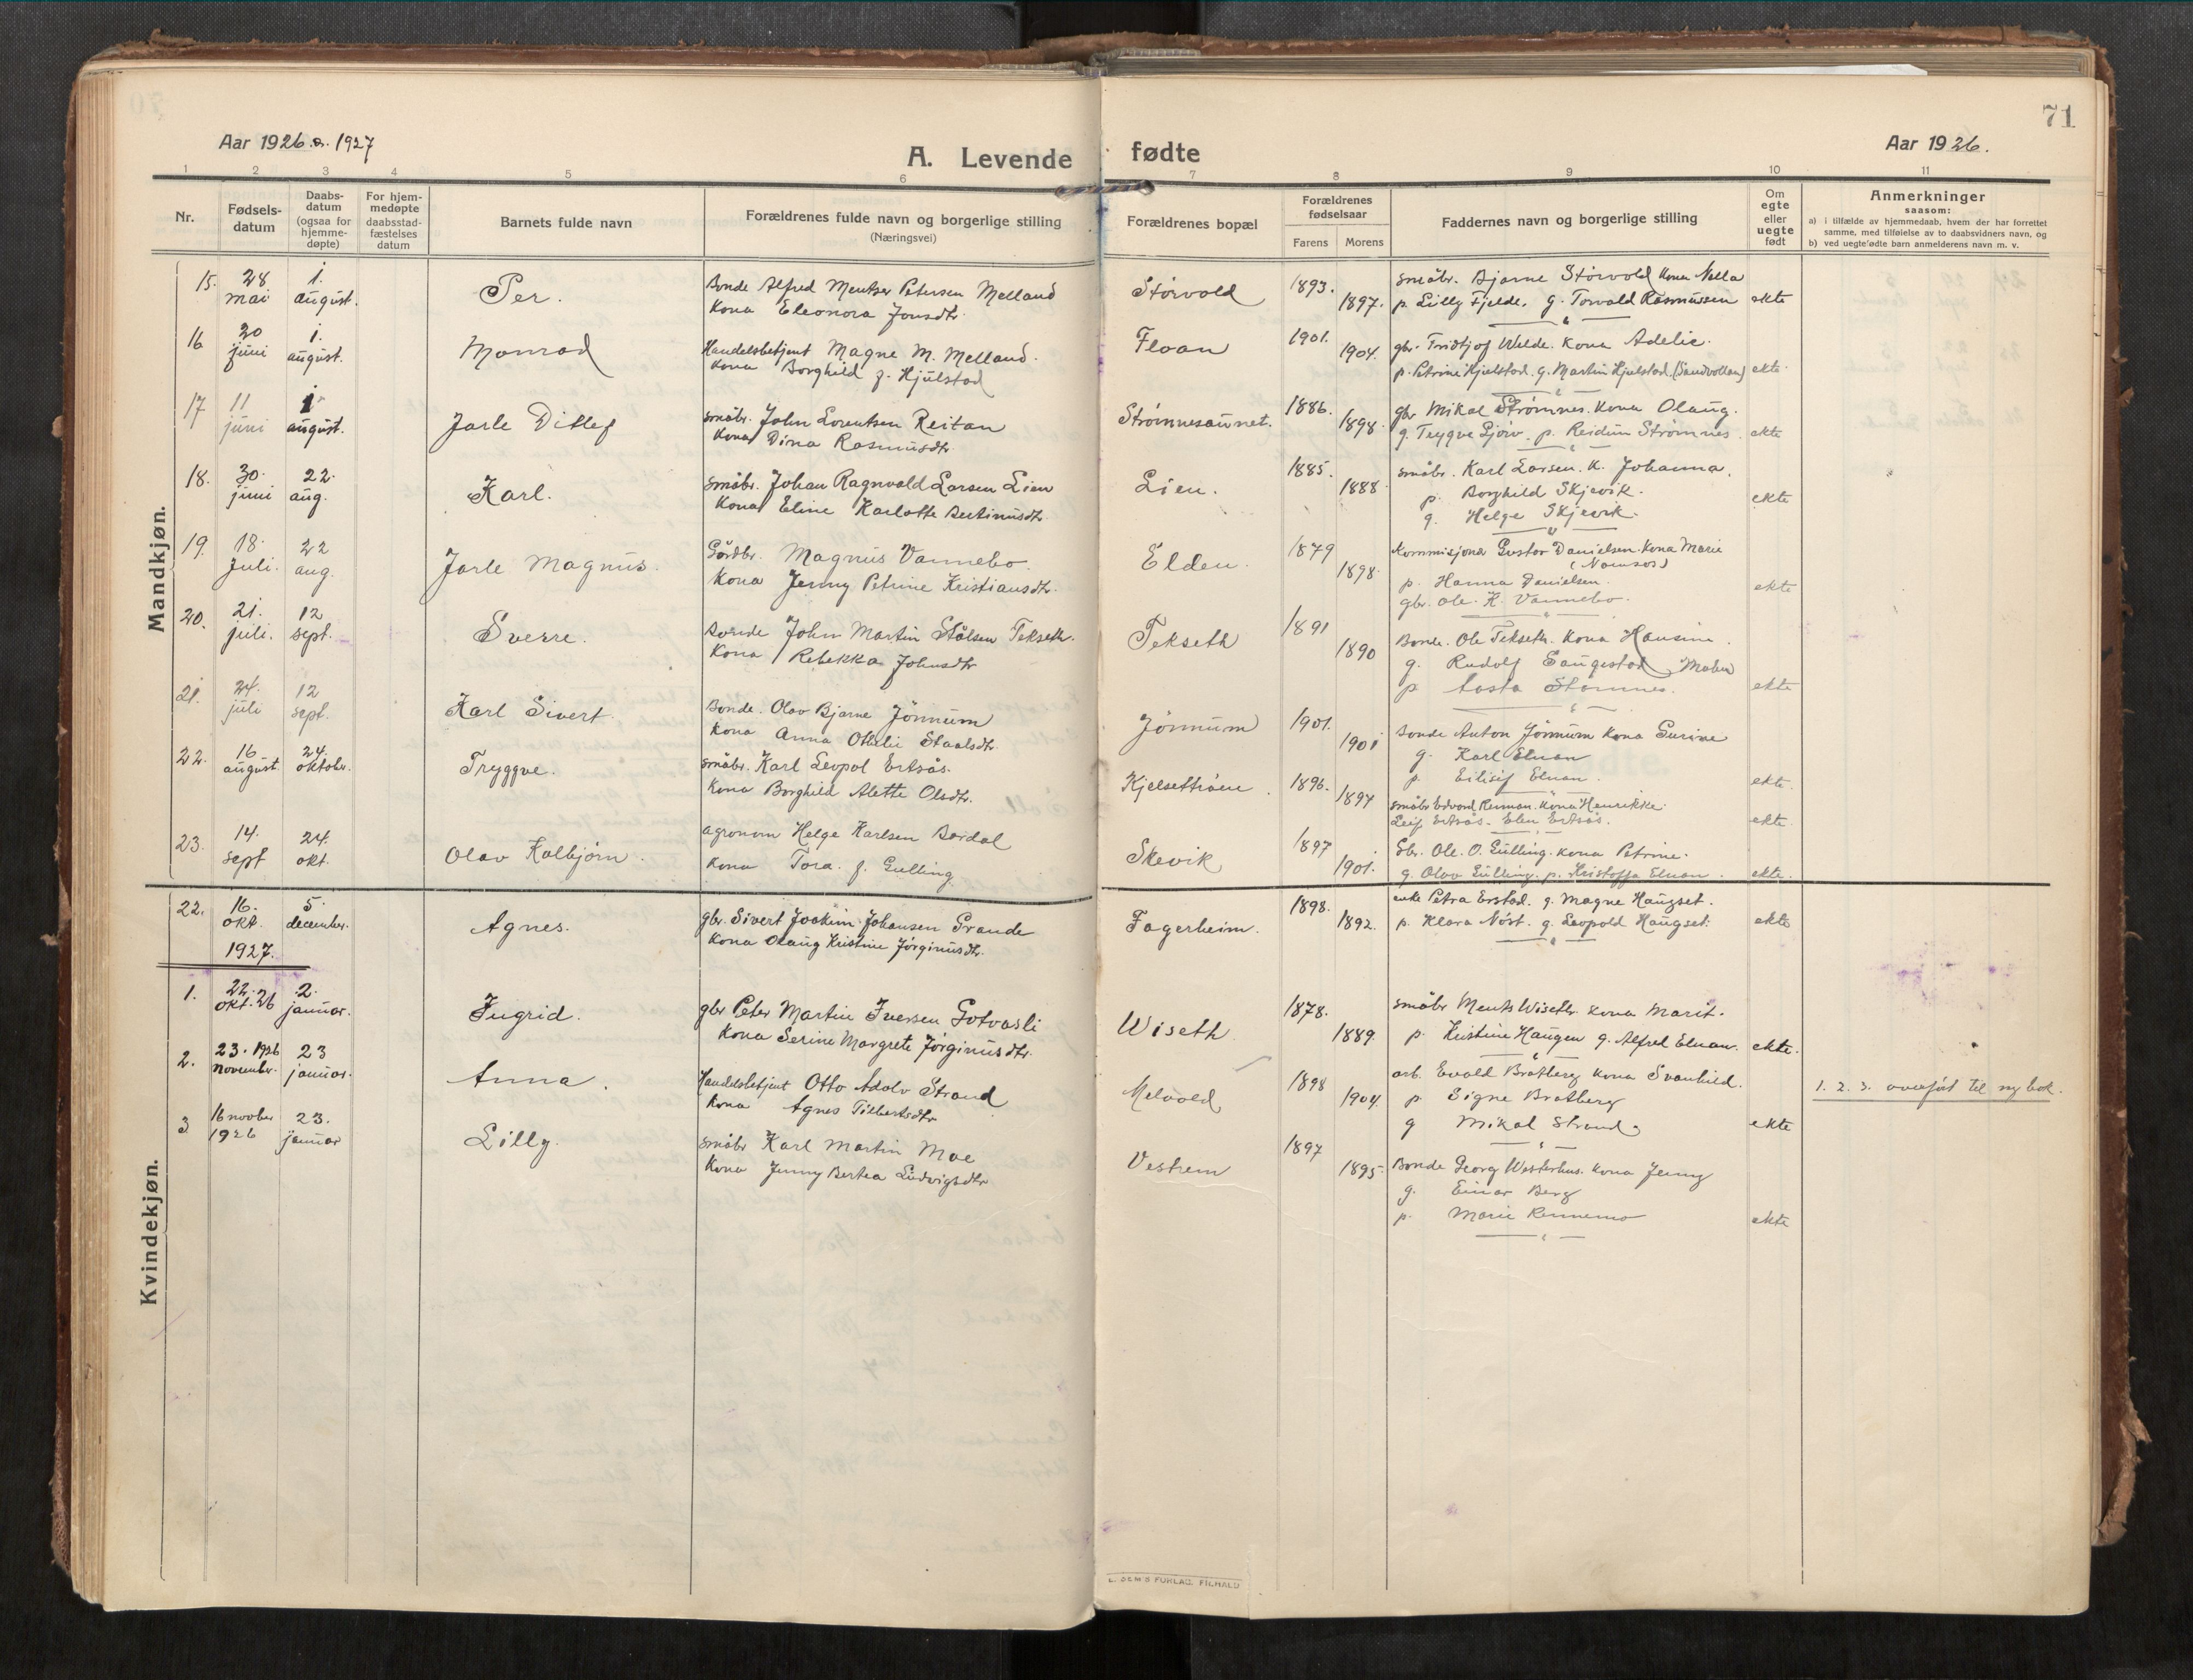 71
Aar 1926. og. 1927
A. Levende fødte
Aar 1926.
1 2 3 4 5 6 7 8 9 10 11
Nr.
Fødsels-
datum
Daabs-
datum
(ogsaa for
hjemme-
døpte)
For hjem-
medøpte
daabsstad-
fæstelses
datum
Barnets fulde navn
Forældrenes fulde navn og borgerlige stilling
(Næringsvei)
Forældrenes bopæl
Forældrenes
fødselsaar
Farens Morens
Faddernes navn og borgerlige stilling
Om
egte
eller
uegte
født
Anmerkninger
saasom:
a) i tilfælde av hjemmedaab, hvem der har forrettet
samme, med tilføielse av to daabsvidners navn, og
b) ved uegte fødte barn anmelderens navn m. v.
Mandkjøn.
15. 28 mai 1. august. Per.
Bonde Alfred Mentser Petersen Melland
Kona Eleonora Jonsdtr.
Størvold 1893. 1897.
småbr. Bjarne Størvold Kona Nella
p. Lilly Fjelde. g. Torvald Rasmussen ekte
16 20 juni 1. august. Monrad
Handelsbetjent Magne M. Melland.
Kona Borghild f. Hjulstad
Floan 1901. 1904.
gbr. Fridtjof Welde. Kona Adelie.
p. Petrine Hjulstad. g. Martin Hjulstad. (Sandvollan) ekte
17 11 juni 1 august. Jarle Ditlef
småbr. John Lorentsen Reitan
Kona Dina Rasmusdtr.
Strømnesaunet. 1886. 1898.
gbr Mikal Strømnes. Kona Olaug.
g. Trygve Gjørv. p. Reidun Strømnes. ekte
18. 30. juni 22. aug. Karl.
småbr. Johan Ragnvald Larsen Lien
Kona Eline Karlotte Bertinusdtr.
Lien. 1885. 1888
småbr. Karl Larsen. K. Johanna.
p. Borghild Skjevik.
g. Helge Skjevik. ekte
19. 18. Juli. 22 aug. Jarle Magnus.
Gårdbr. Magnus Vannebo.
Kona Jenny Petrine Kristiansdtr.
Elden. 1879 1898.
Kommisjonær Gustav Danielsen. Kona Marie
(Namsos)
p. Hanna Danielsen.
gbr. Ole. K. Vannebo. ekte
20. 21. juli. 12 sept. Sverre.
Bonde John Martin Stålsen Tekseth.
Kona Rebekka Johnsdtr
Tekseth 1891 1890
Bonde. Ole Tekseth. Kona Hansine.
g. Rudolf Saugestad
p. Aasta Stamnes. ekte
21. 24. juli 12 sept. Karl Sivert.
Bonde. Olav Bjarne Jönnum
Kona Anna Othelie Staalsdtr.
Jönnum 1901. 1901
Bonde Anton Jönnum Kona Gurine
g. Karl Elnan
p. Eilisif Elnan. ekte.
22. 16 august 24. oktober. Tryggve.
småbr. Karl Leopol Ertsås.
Kona Borghild Alette Olsdtr.
Kjelsettrøen. 1896. 1897
småbr. Edvard Renman. Kona Henrikke.
Leif Ertsås. Elen Ertsås. ekte.
23. 14. sept 24. okt. Olav Kolbjørn.
agronom Helge Karlsen Bardal
Kona Tora. f. Gulling
Skevik 1897 1901.
Gbr. Ole. O. Gulling. Kona Petrine.
g Olav Gulling. p. Kristoffa Elnan. ekte.
Kvindekjøn.
22. 16. okt. 5. december. Agnes.
gbr. Sivert Joakim Johansen Grande
Kona Olaug Kristine Jørginusdtr.
Fagerheim. 1898. 1892.
enke Petra Erstad. g. Magne Haugset.
p. Klara Nøst. g. Leopold Haugset. ekte
1927.
1. 22. okt. 26 2. januar. Ingrid.
gbr Peter Martin Iversen Gotvasli
Kona Serine Margrete Jørginusdtr.
Wiseth 1878. 1889.
småbr Ments Wiseth. Kona Marit.
p. Kristine Haugen g. Alfred Elnan. ekte.
2. 23. 1926 november. 23 januar. Anna.
Handelsbetjent Otto Adolv Strand
Kona Agnes Tilbertsdtr.
Melvold 1898 1904.
arb. Evald Bratberg Kona Svanhild.
p. Signe Bratberg
g Mikal Strand. ekte
1. 2. 3. overført til ny bok.
3 16 november 1926 23. januar Lilly.
småbr Karl Martin Moe
Kona Jenny Bertea Ludvigsdtr
Vestrem 1897 1895.
Bonde Georg Westerhus. Kona Jenny
g. Einar Berg
p. Marie Rennemo ekte
E. SEM'S FORLAG, F.HALD